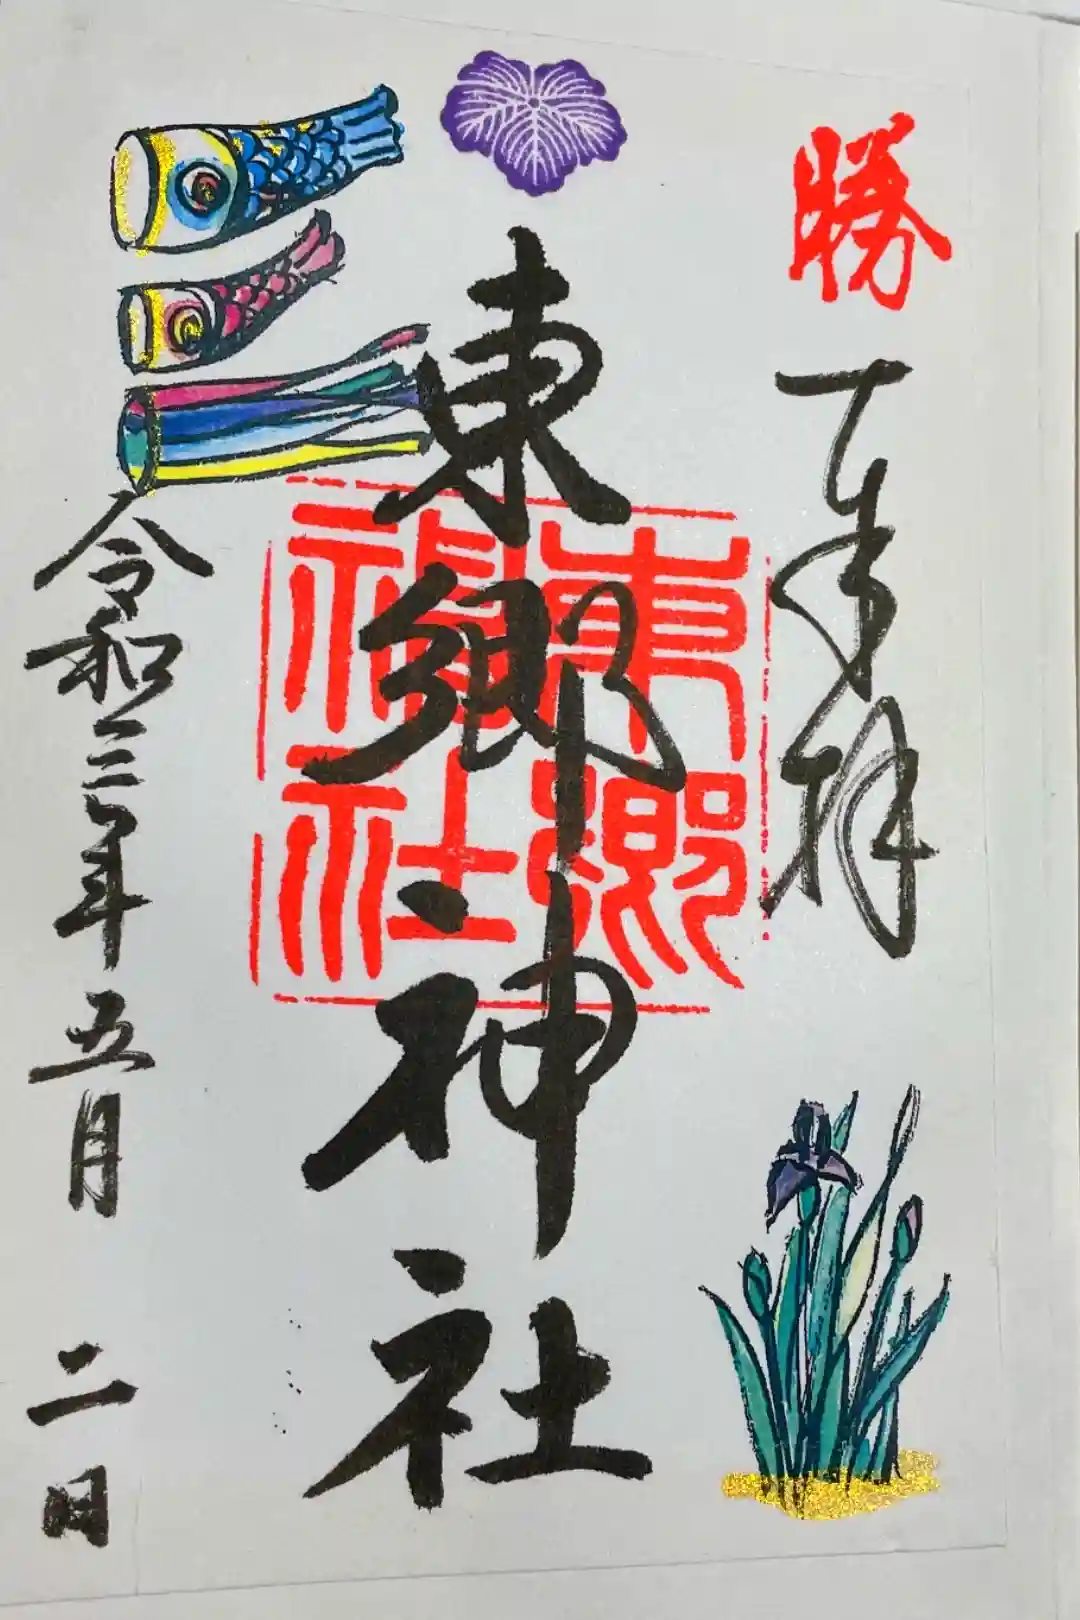 勝
奉拝
東郷神社
東郷神社
令和三年五月二日